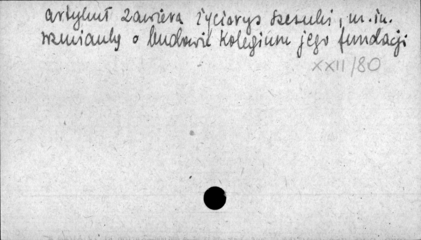 artykuł zawiera życiorys Szembeki, m.in.
wzmianky o budowie Kolegium jego fundacji
XXII/80